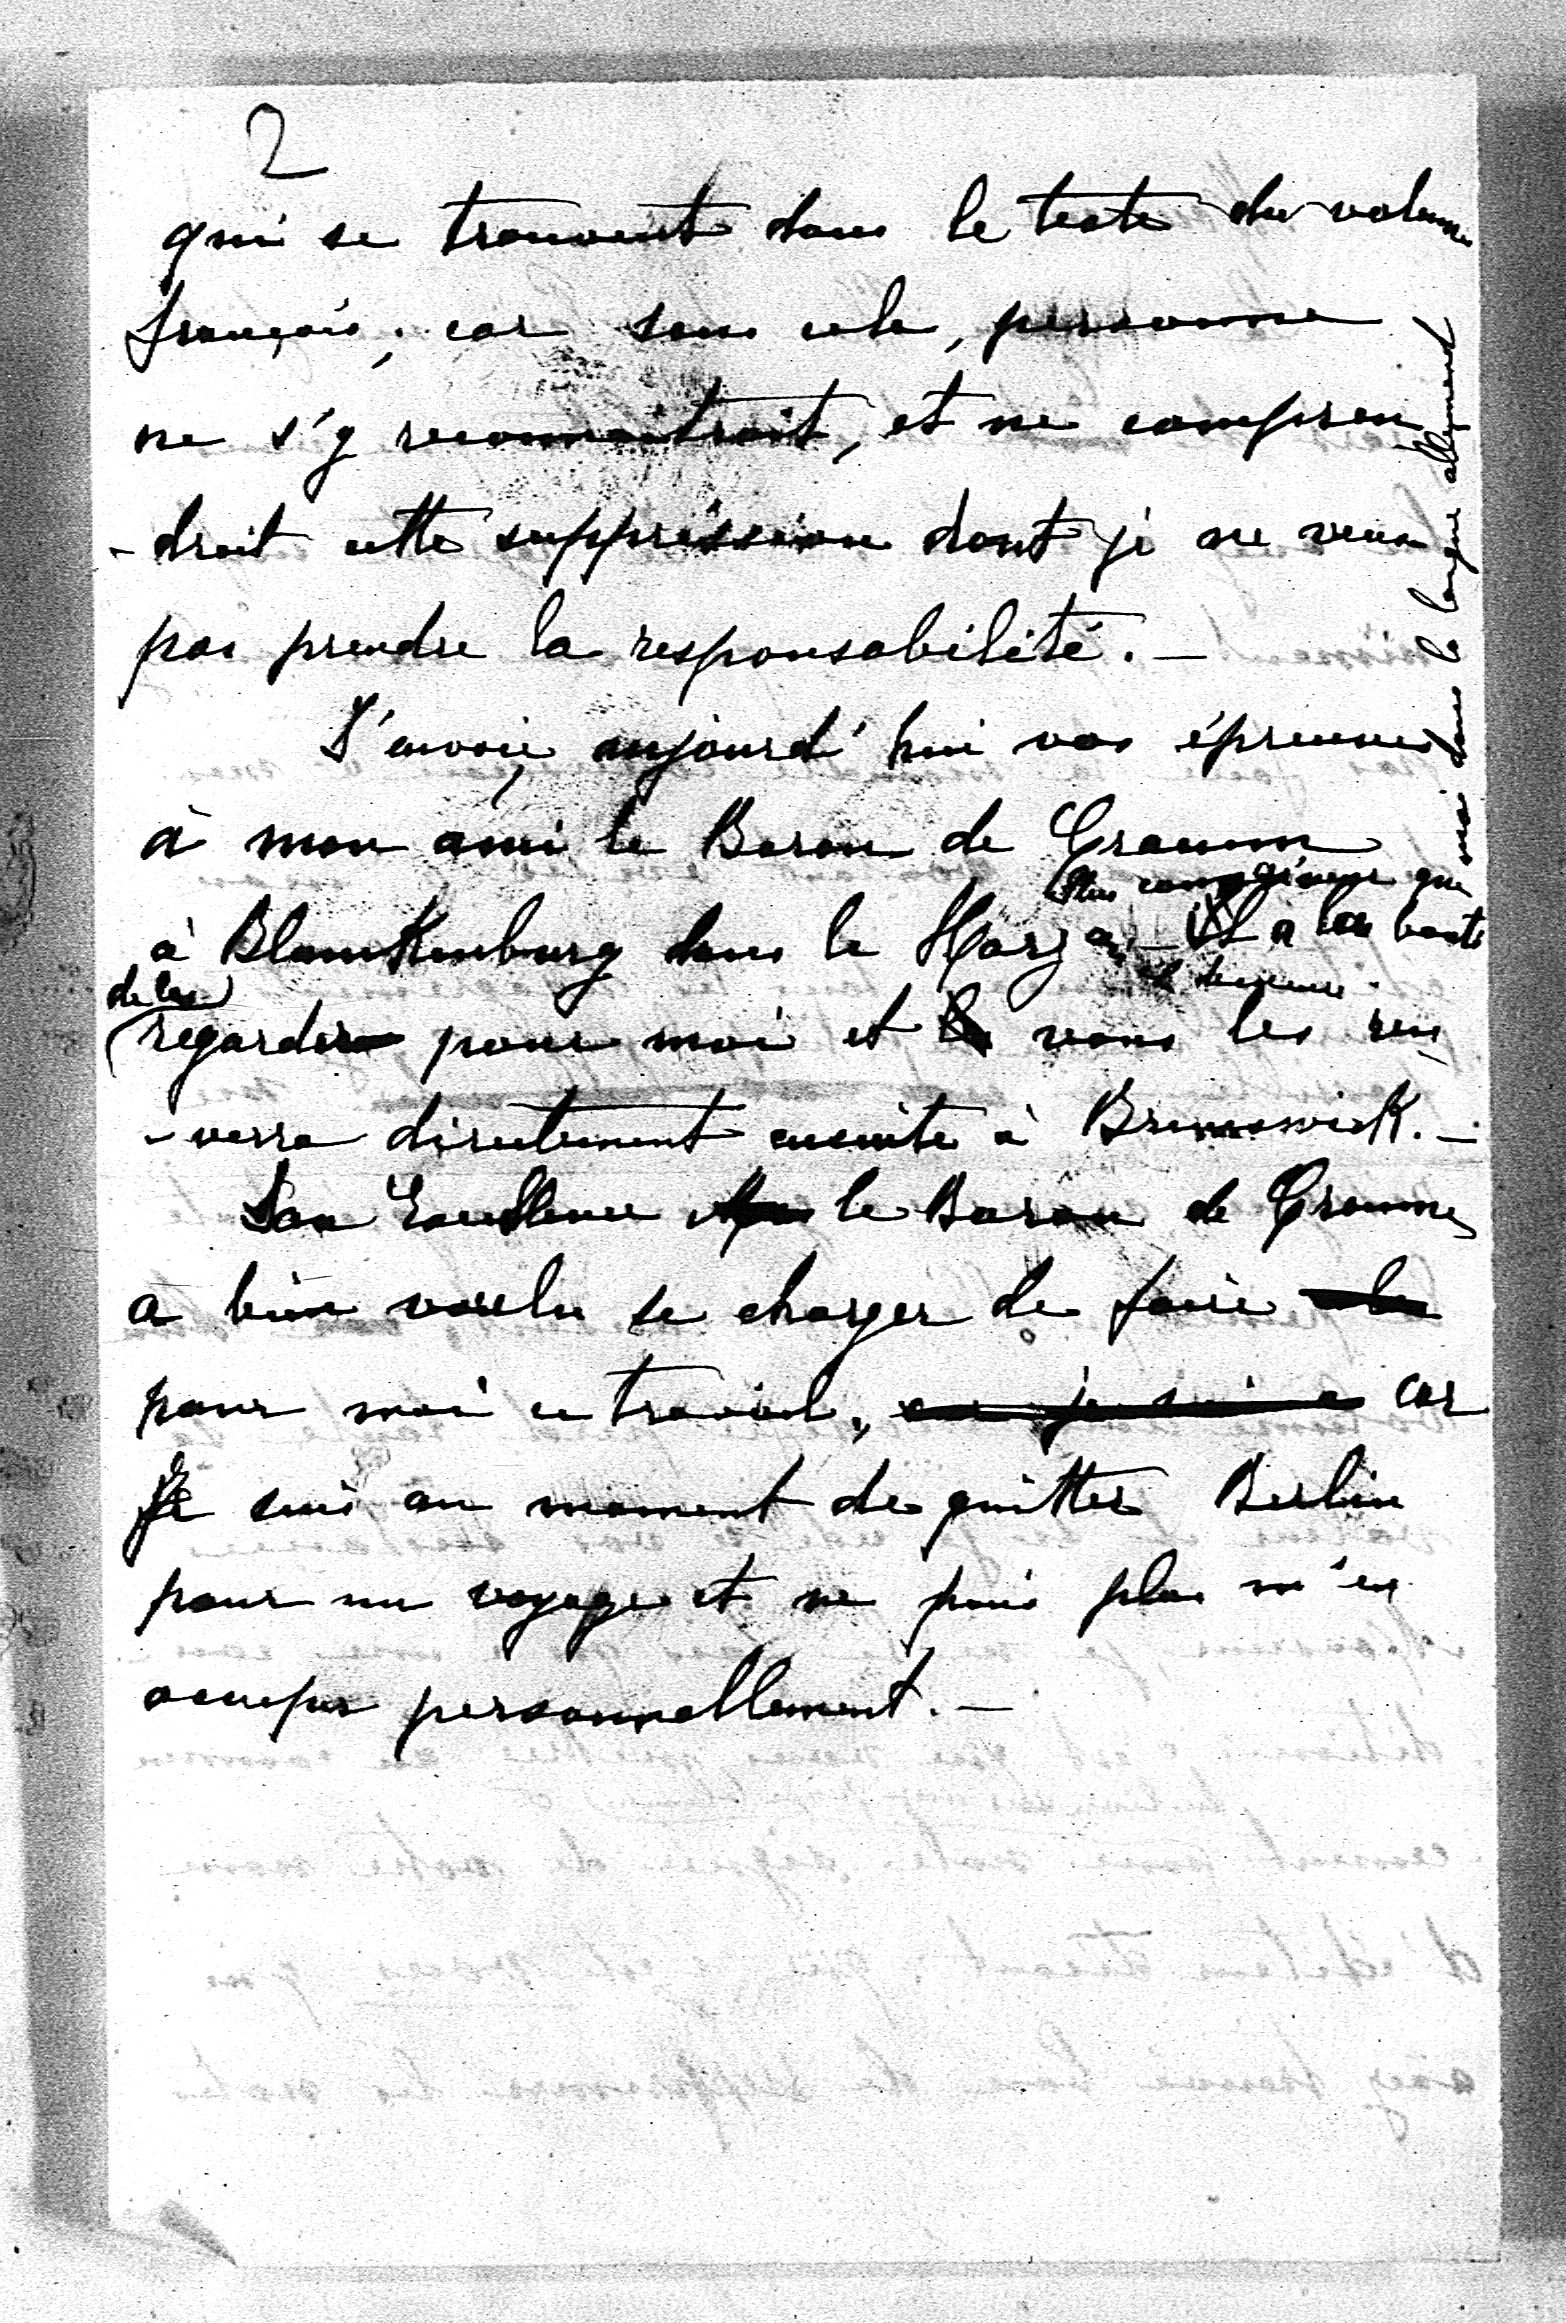 2
qui se trouvent dans le texte du volume
français, car sans cela, personne
ne s'y reconnaitrait, et ne compren
-drait cette suppression dont je ne veux
pas prendre la responsabilité. —
J'envoie aujourd'hui vos épreuves
à mon ami le Baron de Cramm
plus compétent que
moi dans la langue allemand
à Blankenburg dans le Harz où il demeure. — Il a la bonté
de les
regarder pour moi et vous les ren
-verra directement ensuite à Brunswick. —
Son Excellence le Baron de Cramm
a bien voulu se charger de faire
pour moi ce travail, car je suis car
Je suis au moment de quitter Berlin
pour un voyage et ne puis plus m'en
occuper personnellement. —